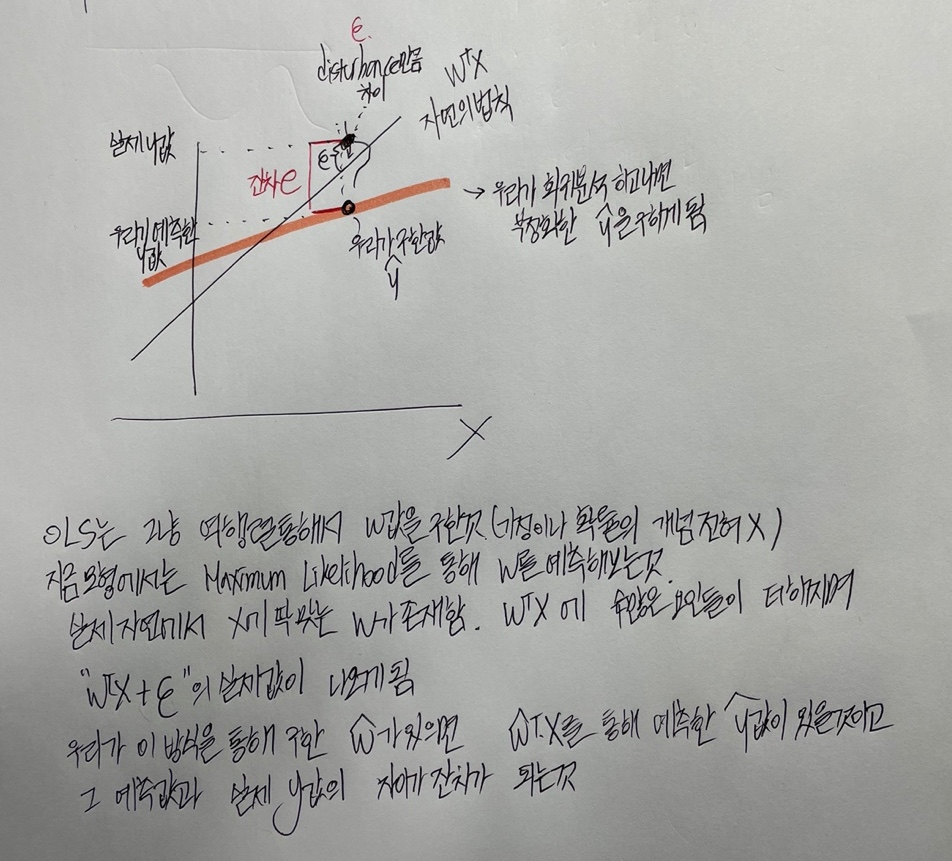 ε
disturbance만큼
차이
WᵀX
자연의 법칙
실제 y값
잔차 e
우리가 예측한
y값
우리가 구한값
ŷ
→ 우리가 회귀분석 하고나면
ŷ을 구하게 됨
X
OLS는 그냥 역행렬 통해서 W값을 구한것 (가정이나 확률의 개념 전혀 X)
지금 모형에서는 Maximum Likelihood를 통해 W를 예측해보는것.
실제 자연에서 X에 딱 맞는 W가 존재함. WᵀX 에 수많은 요인들이 더해지며
"WᵀX + ε"의 실제값이 나오게 됨
우리가 이 방식을 통해 구한 Ŵ가 있으면 ŴᵀX를 통해 예측한 ŷ값이 있을것이고
그 예측값과 실제 y값의 차이가 잔차가 되는것